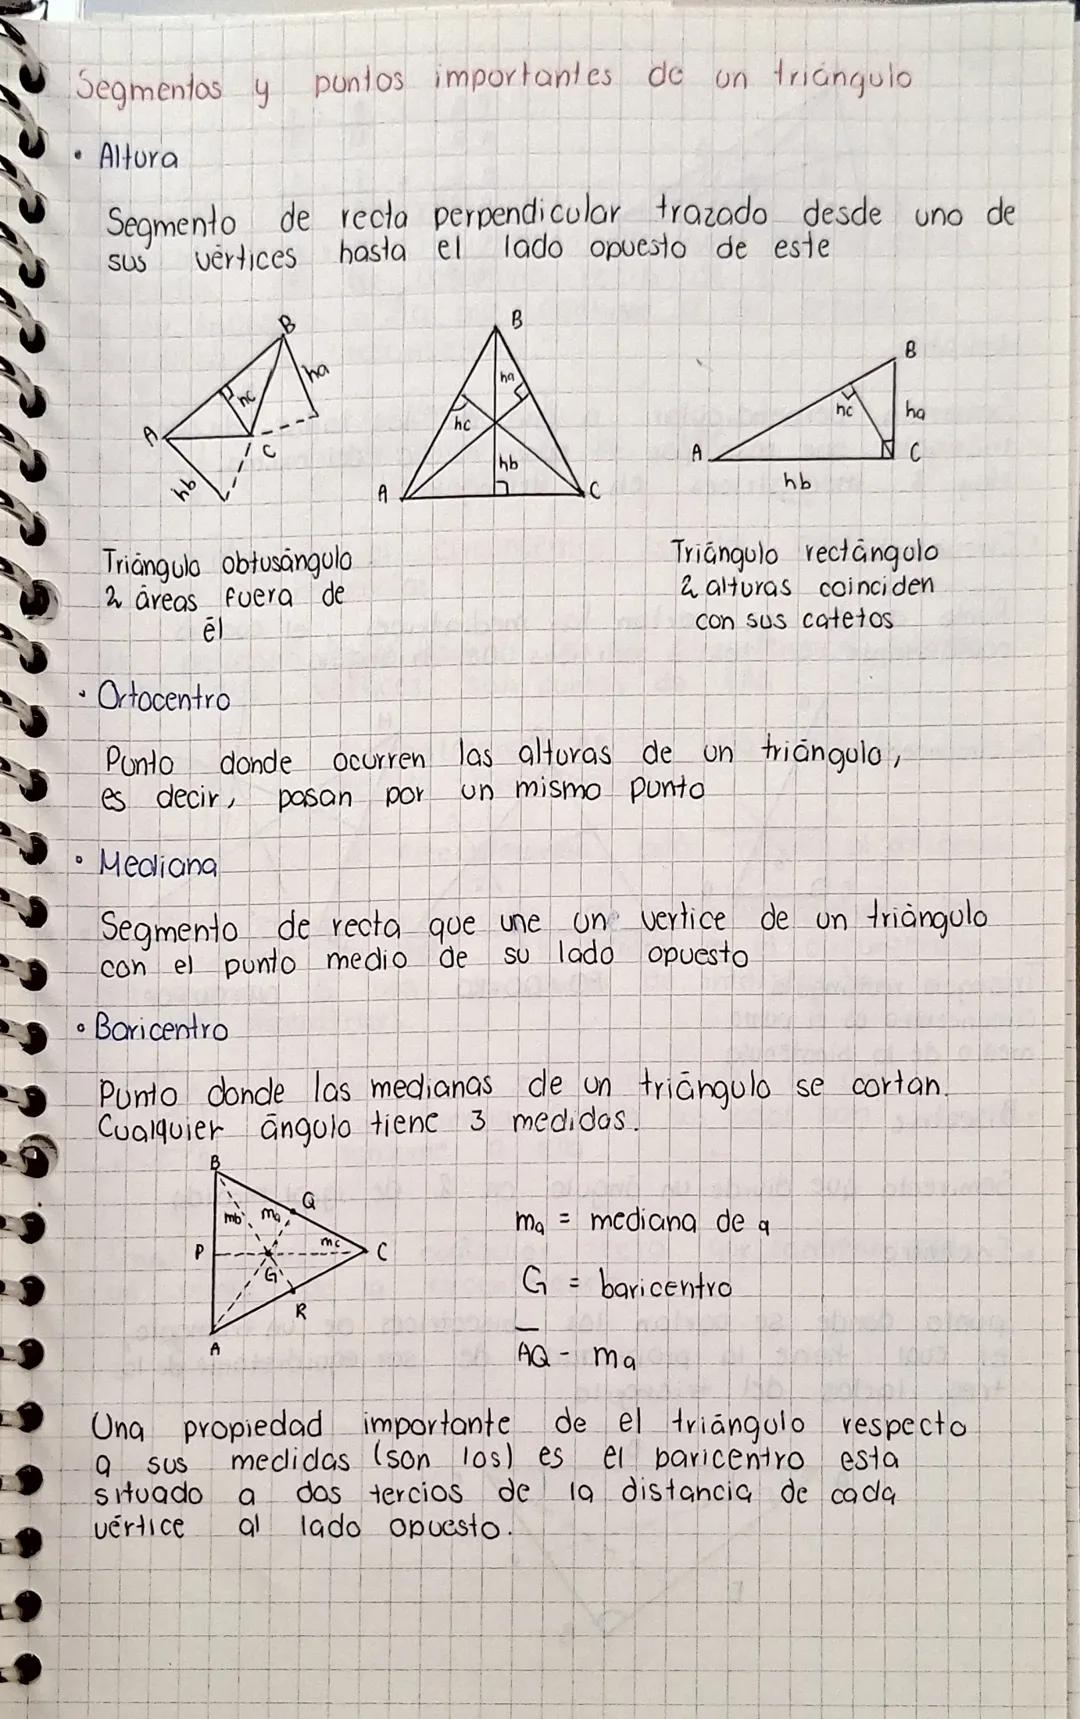 Segmentos y puntos importantes de un triángulo
• Altura
Segmento de recta perpendicular trazado desde uno de
sus vértices hasta el lado opuesto de este
B
ha
hc
A
C
hb
B
ha
hc
hb
A
C
B
hc
ha
A
C
hb
Triángulo obtusángulo
2 áreas fuera de
él
Triángulo rectángulo
2 alturas coinciden
con sus catetos
• Ortocentro
Punto donde ocurren las alturas de un triángulo,
es decir, pasan por un mismo punto
• Mediana
Segmento de recta que une un vertice de un triángulo
con el punto medio de su lado opuesto
• Baricentro
Punto donde las medianas de un triángulo se cortan.
Cualquier ángulo tiene 3 medidas.
B
Q
mb
ma
P
mc
C
G
R
A
ma = mediana de a
G = baricentro
A̅Q̅ - ma
Una propiedad importante de el triángulo respecto
a sus medidas (son los) es el baricentro esta
situado a dos tercios de la distancia de cada
vértice al lado opuesto.